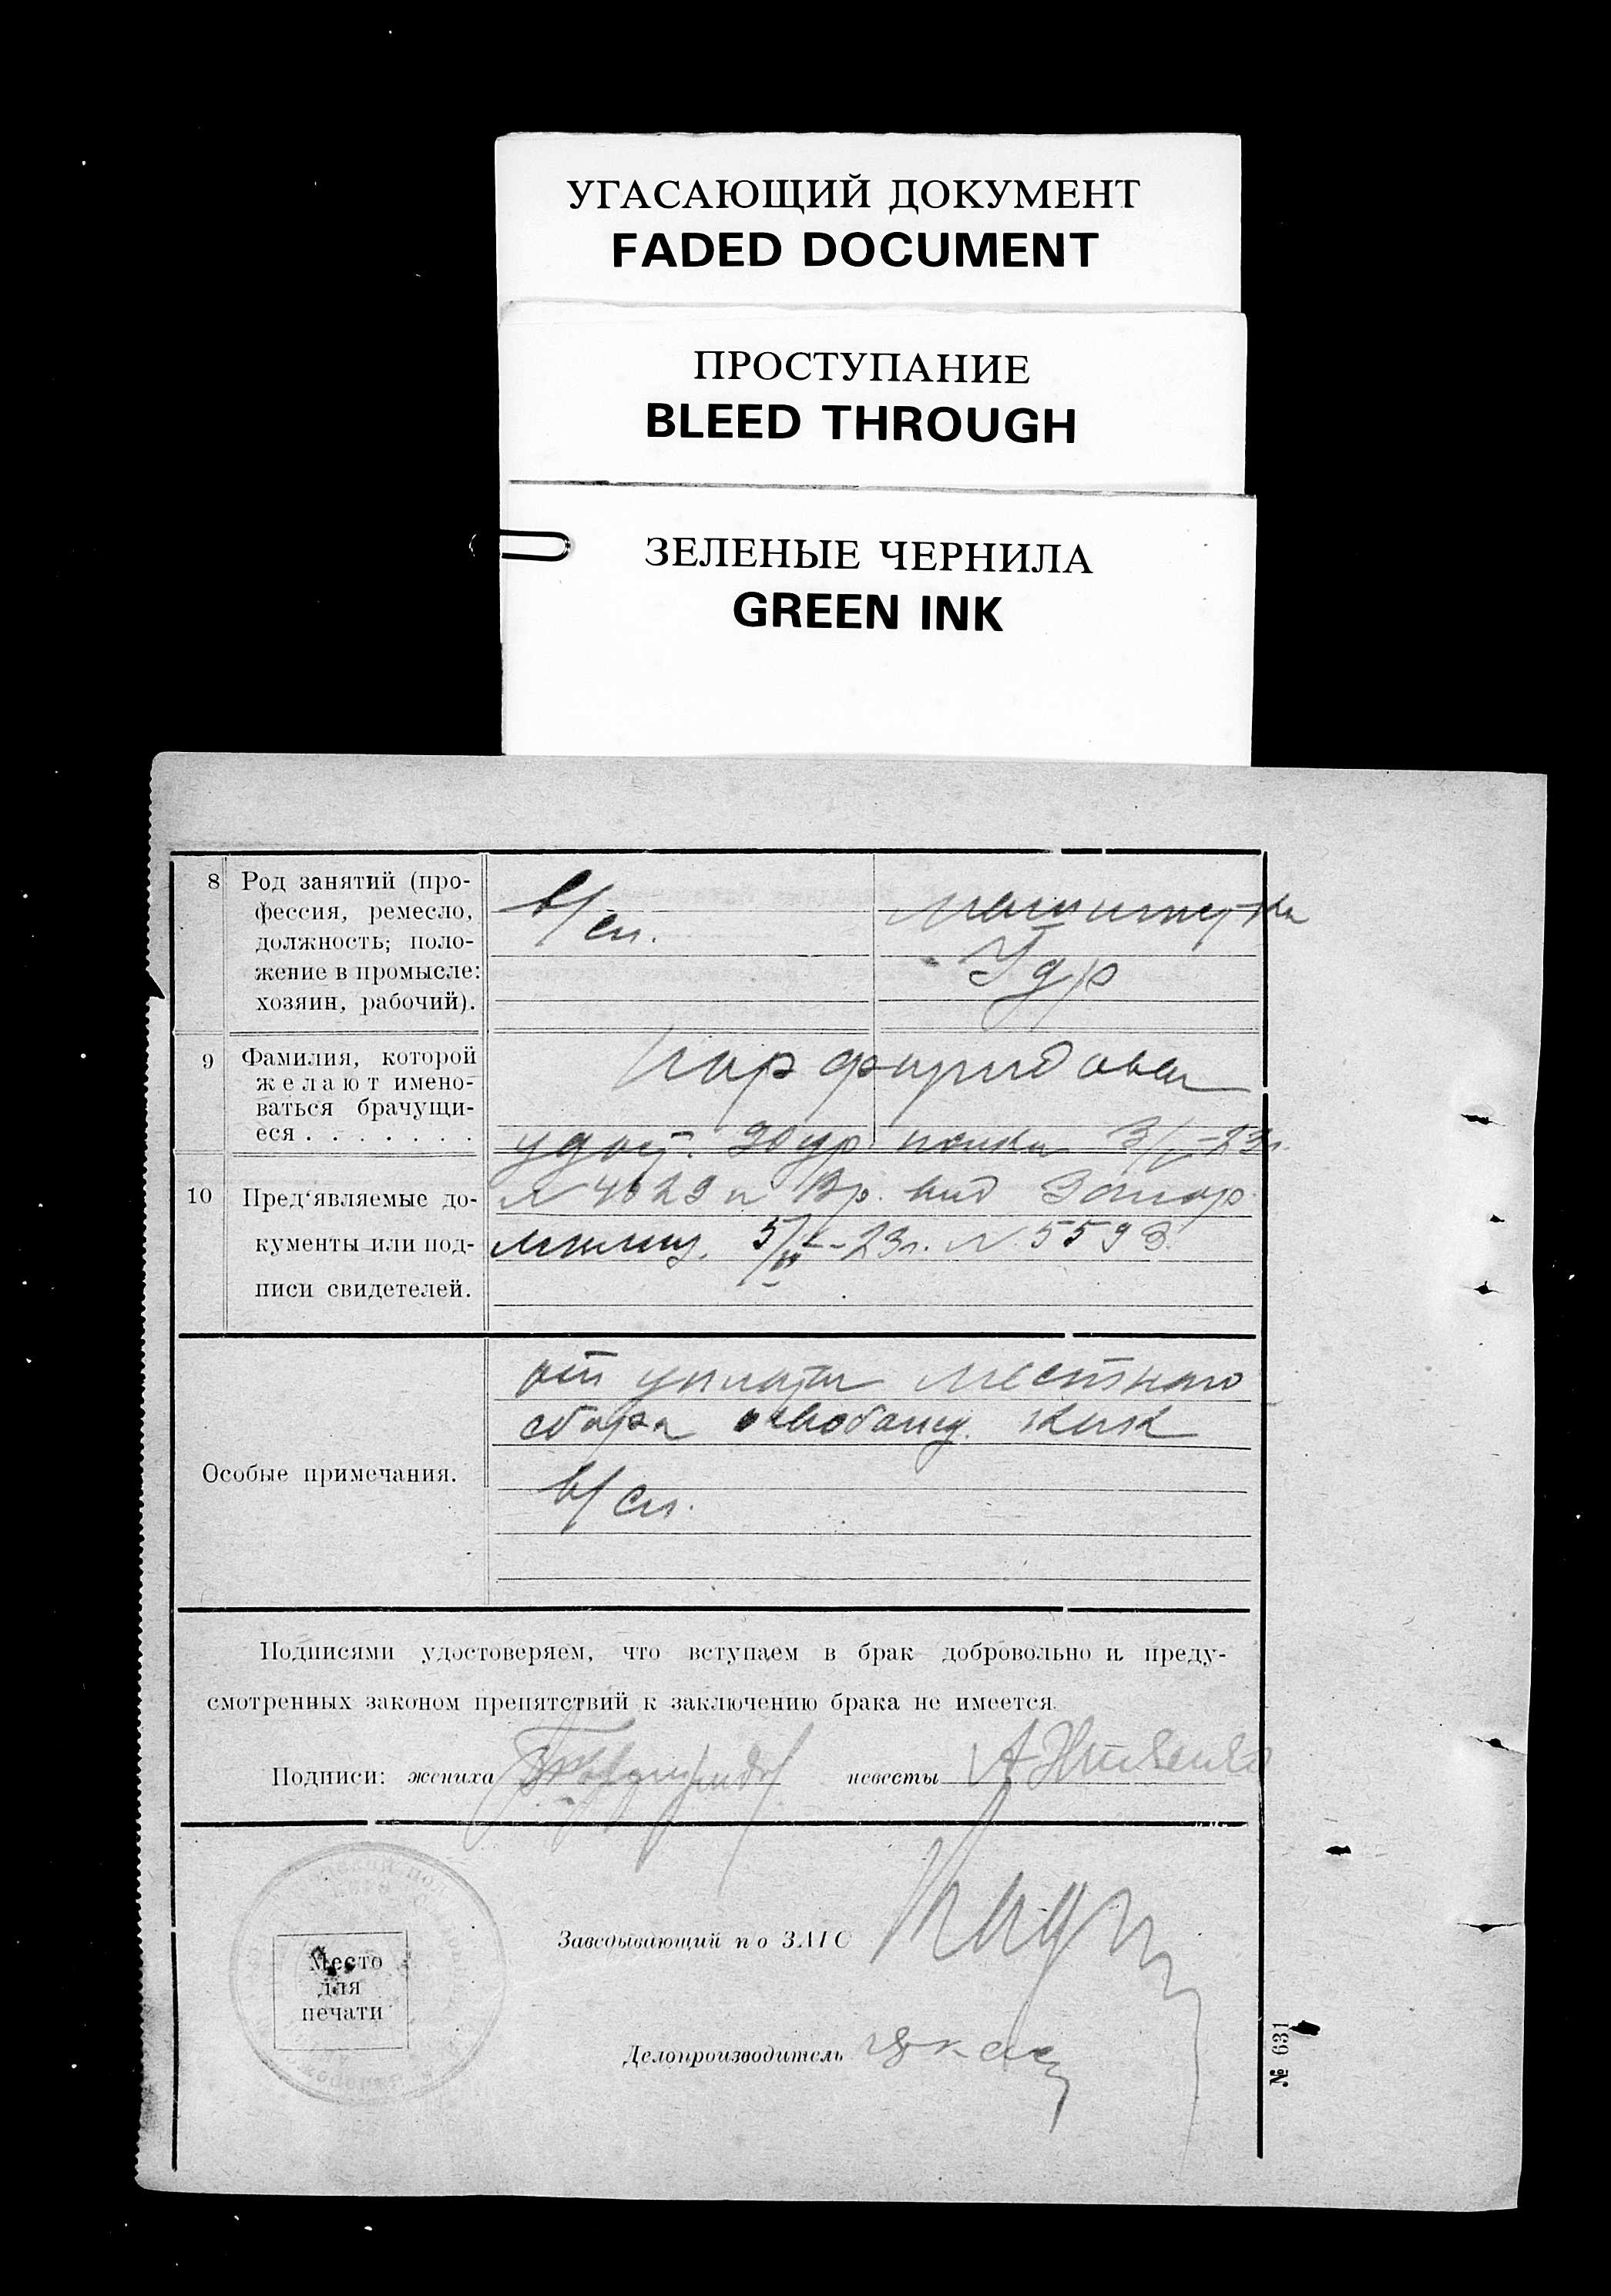 УГАСАЮЩИЙ ДОКУМЕНТ
FADED DOCUMENT
ПРОСТУПАНИЕ
BLEED THROUGH
ЗЕЛЕНЫЕ ЧЕРНИЛА
GREEN INK
8 Род занятий (про-
фессия, ремесло,
должность; поло-
жение в промысле:
хозяин, рабочий).
в/сл.
машинистка
9 Фамилия, которой
желают имено-
ваться брачущи-
еся . . . . . . .
10 Пред'являемые до-
кументы или под-
писи свидетелей.
удост. 30 полка 3/V-23г.
N 4629 и Вр. вид
милиц. 5/-23г. N 5593.
Особые примечания.
от уплаты местного
сбора освобожд. как
в/сл.
Подписями удостоверяем, что вступаем в брак добровольно и преду-
смотренных законом препятствий к заключению брака не имеется.
Подписи: жениха невесты
Заведывающий по ЗАГС
Место
для
печати
Делопроизводитель
№ 631